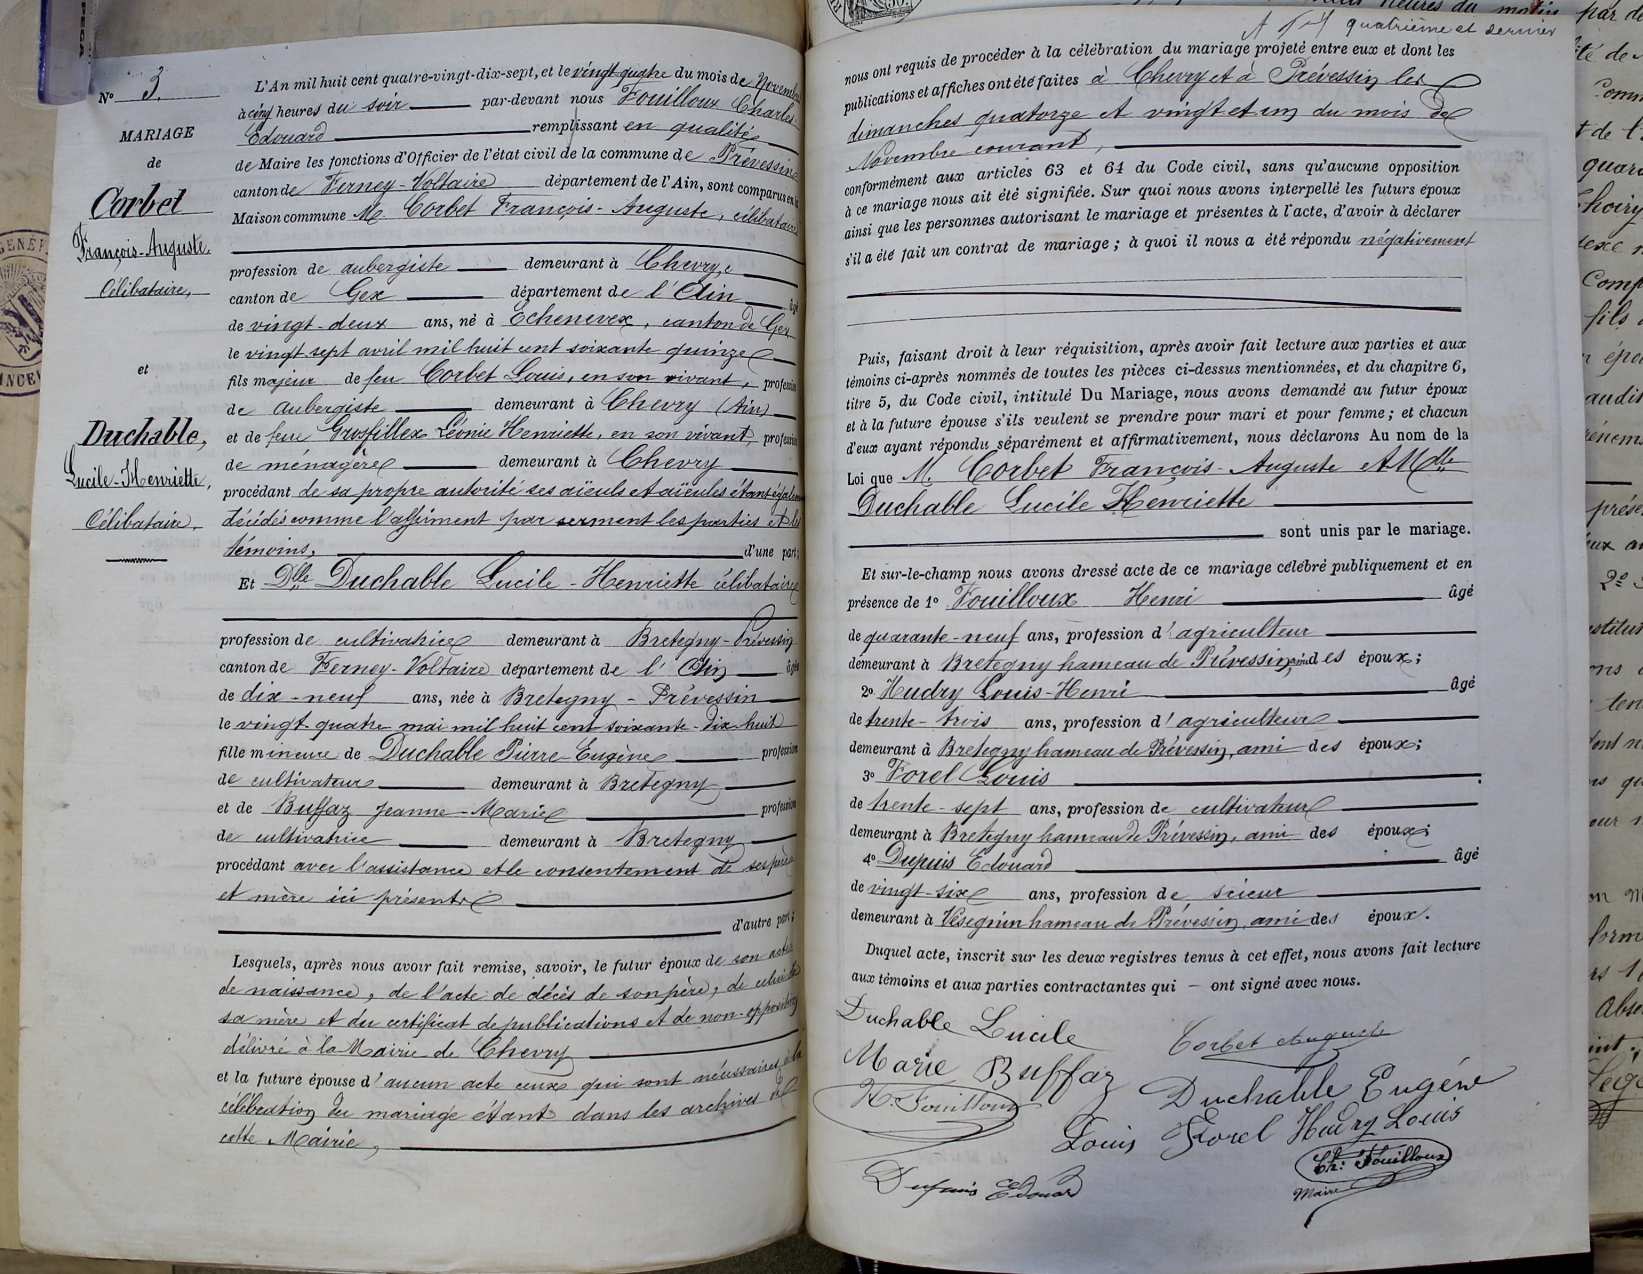 N° 3.
MARIAGE
de
Corbet
François-Auguste.
Célibataire,
et
Duchable,
Lucile-Henriette,
Célibataire.
L'An mil huit cent quatre-vingt-dix-sept, et le vingt quatre du mois de Novembre
à cinq heures du soir par-devant nous Fouilloux Charles
Edouard remplissant en qualité
de Maire les fonctions d'Officier de l'état civil de la commune de Prévessin
canton de Ferney-Voltaire département de l'Ain, sont comparus en la
Maison commune M. Corbet François-Auguste, célibataire
profession de aubergiste demeurant à Chevry,
canton de Gex département de l'Ain âgé
de vingt-deux ans, né à Echenevex, canton de Gex
le vingt sept avril mil huit cent soixante quinze
fils majeur de feu Corbet Louis, en son vivant, profession
de aubergiste demeurant à Chevry (Ain)
et de feue Grosfillex Léonie Henriette, en son vivant, profession
de ménagère demeurant à Chevry
procédant de sa propre autorité ses aïeuls et aïeules étant également
décédés comme l'affirment par serment les parties et les
témoins, d'une part;
Et Dlle Duchable Lucile-Henriette célibataire
profession de cultivatrice demeurant à Bretegny-Prévessin
canton de Ferney-Voltaire département de l'Ain âgée
de dix-neuf ans, née à Bretegny-Prévessin
le vingt quatre mai mil huit cent soixante-dix-huit
fille mineure de Duchable Pierre-Eugène profession
de cultivateur demeurant à Bretegny
et de Buffaz Jeanne-Marie profession
de cultivatrice demeurant à Bretegny
procédant avec l'assistance et le consentement de ses père
et mère ici présents
d'autre part;
Lesquels, après nous avoir fait remise, savoir, le futur époux de son acte
de naissance, de l'acte de décès de son père, de celui de
sa mère et du certificat de publications et de non-opposition
délivré à la Mairie de Chevry
et la future épouse d'aucun acte ceux qui sont nécessaires à la
célébration du mariage étant dans les archives de
cette Mairie,
quatrième et dernier
nous ont requis de procéder à la célébration du mariage projeté entre eux et dont les
publications et affiches ont été faites à Chevry et à Prévessin les
dimanches quatorze et vingt et un du mois de
Novembre courant,
conformément aux articles 63 et 64 du Code civil, sans qu'aucune opposition
à ce mariage nous ait été signifiée. Sur quoi nous avons interpellé les futurs époux
ainsi que les personnes autorisant le mariage et présentes à l'acte, d'avoir à déclarer
s'il a été fait un contrat de mariage; à quoi il nous a été répondu négativement
Puis, faisant droit à leur réquisition, après avoir fait lecture aux parties et aux
témoins ci-après nommés de toutes les pièces ci-dessus mentionnées, et du chapitre 6,
titre 5, du Code civil, intitulé Du Mariage, nous avons demandé au futur époux
et à la future épouse s'ils veulent se prendre pour mari et pour femme; et chacun
d'eux ayant répondu séparément et affirmativement, nous déclarons Au nom de la
Loi que M. Corbet François-Auguste et Mdlle
Duchable Lucile Henriette
sont unis par le mariage.
Et sur-le-champ nous avons dressé acte de ce mariage célébré publiquement et en
présence de 1° Fouilloux Henri âgé
de quarante-neuf ans, profession d'agriculteur
demeurant à Bretegny hameau de Prévessin, ami des époux;
2° Hudry Louis-Henri âgé
de trente-trois ans, profession d'agriculteur
demeurant à Bretegny hameau de Prévessin, ami des époux;
3° Forel Louis
de trente-sept ans, profession de cultivateur
demeurant à Bretegny hameau de Prévessin, ami des époux;
4° Dupuis Edouard âgé
de vingt-six ans, profession de scieur
demeurant à Vésegnin hameau de Prévessin, ami des époux.
Duquel acte, inscrit sur les deux registres tenus à cet effet, nous avons fait lecture
aux témoins et aux parties contractantes qui – ont signé avec nous.
Duchable Lucile
Corbet Auguste
Marie Buffaz
Duchable Eugène
H. Fouilloux
Louis Forel Hudry Louis
Ch: Fouilloux
Maire
Dupuis Edouard